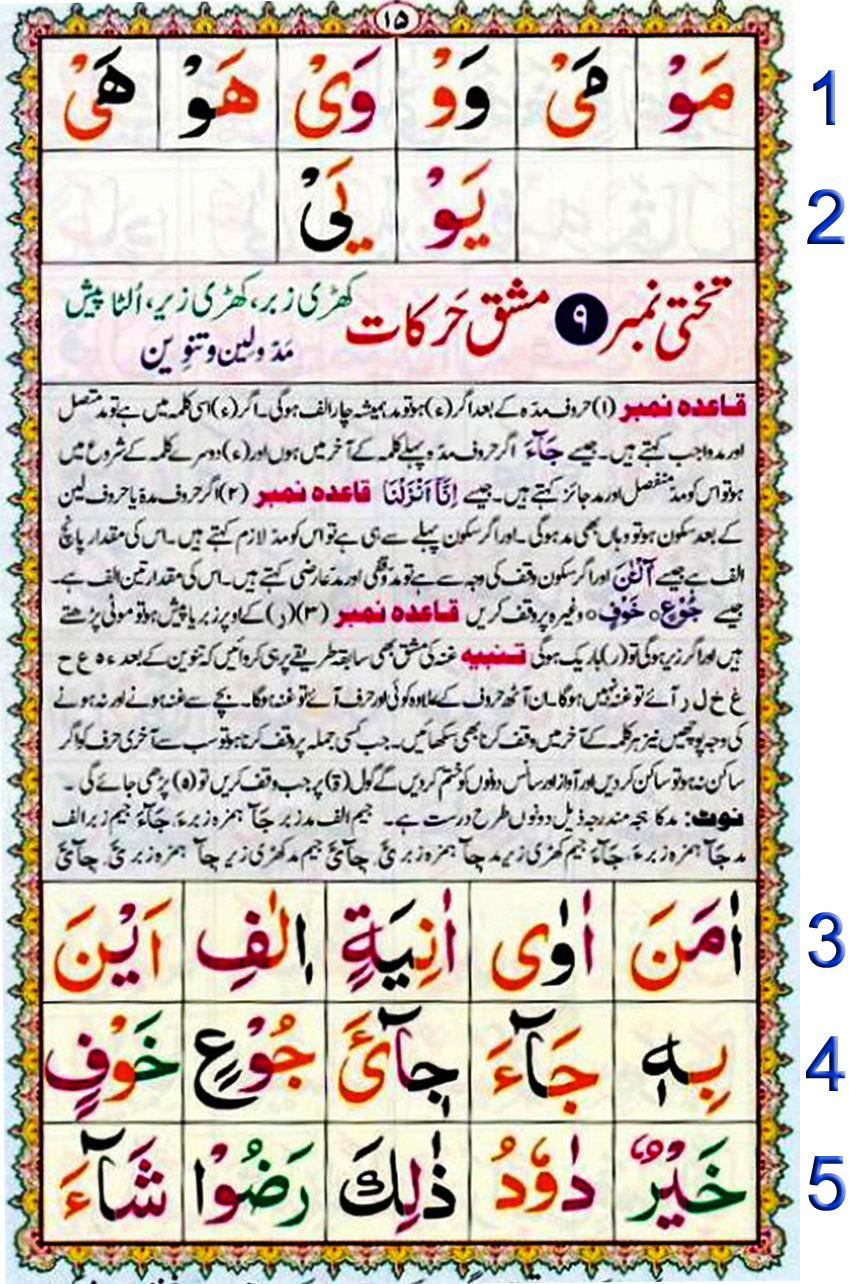 ١٥
مَوْ هَیْ وَوْ وَیْ هَوْ هَیْ
1
یَوْ یَیْ
2
تختی نمبر ۹ مشق حَرکات کھڑی زبر، کھڑی زیر، اُلٹا پیش
مَدّ ولین وتنوین
قاعدہ نمبر (۱) حروف مدّہ کے بعد اگر (ء) ہوتو مد ہمیشہ چار الف ہوگی۔ اگر (ء) اسی کلمہ میں ہے تو مد متصل
اور مد واجب کہتے ہیں۔ جیسے جَآءَ اگر حروف مدّہ پہلے کلمہ کے آخر میں ہوں اور (ء) دوسرے کلمہ کے شروع میں
ہوتو اس کو مدّ منفصل اور مد جائز کہتے ہیں۔ جیسے اِنَّآ اَنْزَلْنَا قاعدہ نمبر (۲) اگر حروف مدہ یا حروف لین
کے بعد سکون ہوتو وہاں بھی مد ہوگی۔ اور اگر سکون پہلے سے ہی ہے تو اس کو مدّ لازم کہتے ہیں۔ اس کی مقدار پانچ
الف ہے جیسے آلْـٰٔنَ اور اگر سکون وقف کی وجہ سے ہے تو مد وقفی اور مد عارضی کہتے ہیں۔ اس کی مقدار تین الف ہے۔
جیسے جُوْعٍ○ خَوْفٍ○ وغیرہ پر وقف کریں قاعدہ نمبر (۳) (ر) کے اوپر زبر یا پیش ہوتو موٹی پڑھتے
ہیں اور اگر زیر ہوگی تو (ر) باریک ہوگی تنبیہ غنہ کی مشق بھی سابقہ طریقے پر ہی کروائیں کہ تنوین کے بعد ء ہ ع ح
غ خ ل ر آئے تو غنہ نہیں ہوگا۔ ان آٹھ حروف کے علاوہ کوئی اور حرف آئے تو غنہ ہوگا۔ بچے سے غنہ ہونے اور نہ ہونے
کی وجہ پوچھیں نیز ہر کلمہ کے آخر میں وقف کرنا بھی سکھائیں۔ جب کسی جملہ پر وقف کرنا ہوتو سب سے آخری حرف کو اگر
ساکن نہ ہوتو ساکن کردیں اور آواز اور سانس دونوں کو ختم کردیں گے گول (ۃ) پر جب وقف کریں تو (ہ) پڑھی جائے گی۔
نوٹ: مد کا ہجہ مندرجہ ذیل دونوں طرح درست ہے۔ جیم الف مد زبر جآ ہمزہ زبر ءَ، جَآءَ جیم زبر الف
مد جَآ ہمزہ زبر ءَ، جَآءَ جیم کھڑی زیر مد جآ ہمزہ زبر ئَ، جآئَ جیم مد کھڑی زیر جآ ہمزہ زبر ئَ، جآئَ
اٰمَنَ اٰوٰی اٰنِیَةٍ اٖلٰفِ اَیْنَ
3
بِهٖ جَآءَ جِآیْٓئَ جُوْعٍ خَوْفٍ
4
خَیْرٌ دَاوٗدُ ذٰلِكَ رَضُوْا شَآءَ
5